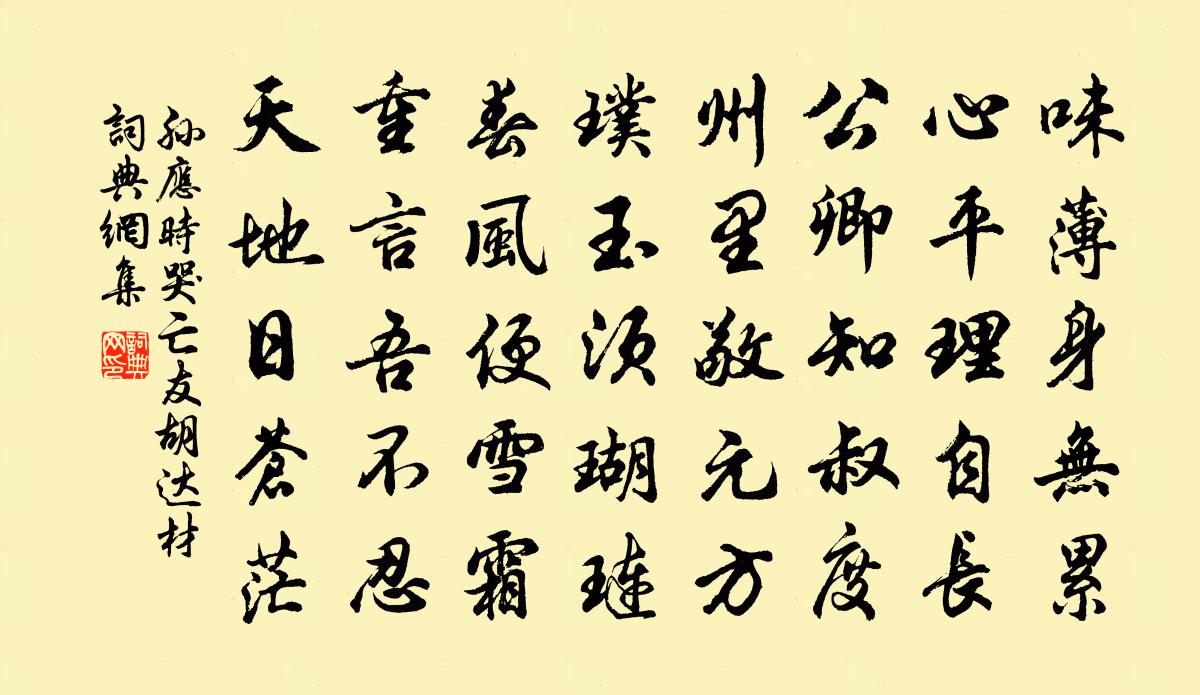 味薄身無累
心平理自長
公卿知叔度
州里敬元方
璞玉須瑚璉
春風便雪霜
重言吾不忍
天地日蒼茫
孫應時哭亡友胡达材
詞典網集
詞典